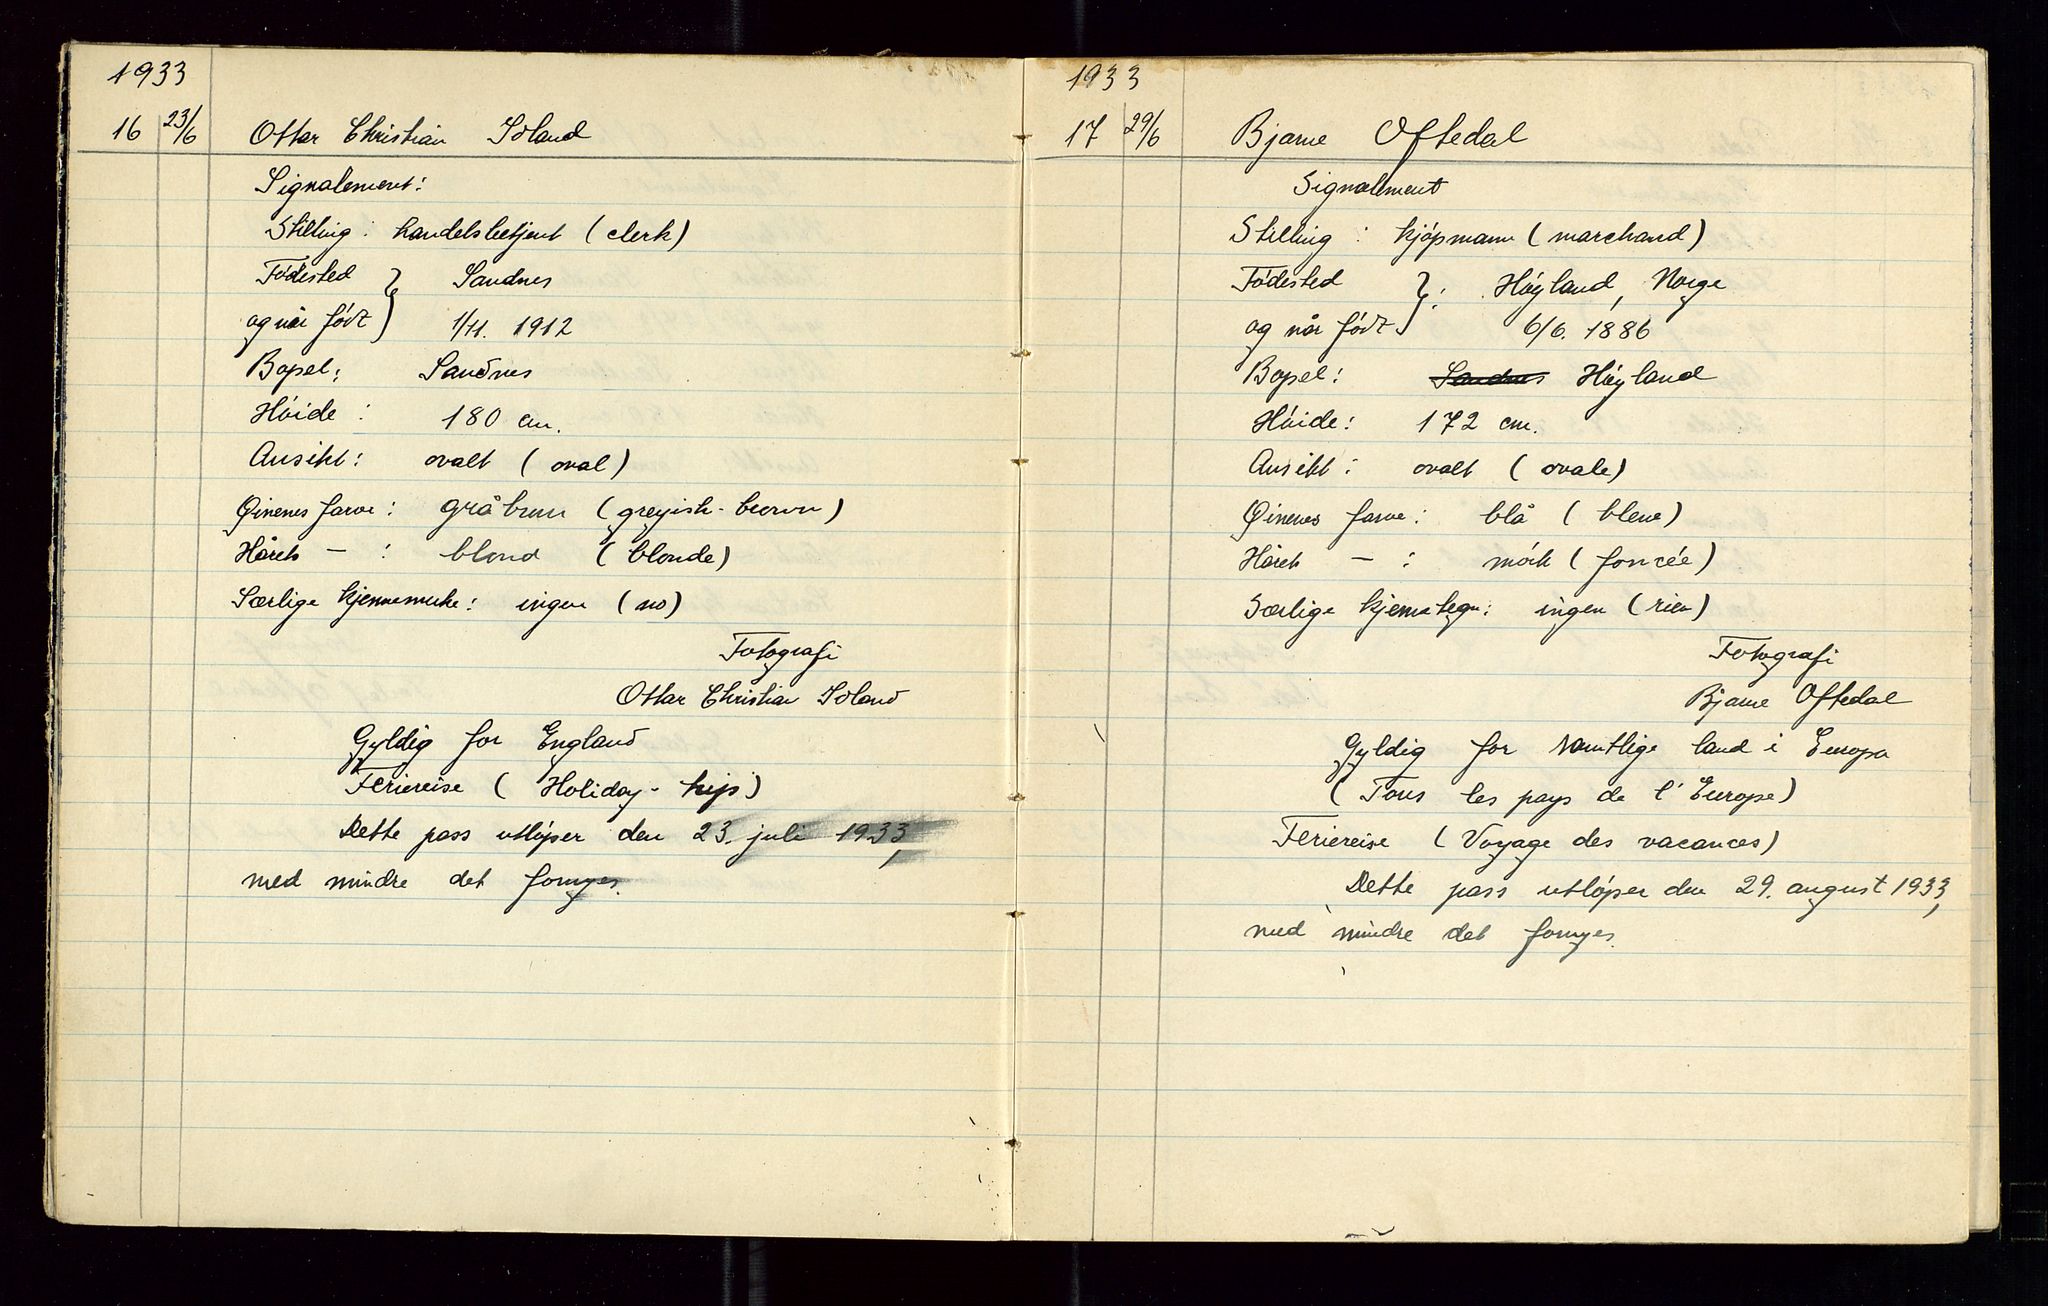 1933
16 23/6 Ottar Christian Soland
Signalement:
Stilling: handelsbetjent (clerk)
Fødested } Sandnes
og når født } 1/11. 1912
Bopel: Sandnes
Høide: 180 cm.
Ansikt: ovalt (oval)
Øinenes farve: gråbrun (greyish-brown)
Hårets — : blond (blonde)
Særlige kjennemerke: ingen (no)
Fotografi
Ottar Christian Soland
Gyldig for England
Feriereise (Holiday-trip)
Dette pass utløper den 23. juli 1933,
med mindre det fornyes.
1933
17 29/6 Bjarne Oftedal
Signalement
Stilling: kjøpmann (marchand)
Fødested } : Høyland, Norge
og når født } 6/6. 1886
Bopel: Sandnes Høyland
Høide: 172 cm.
Ansikt: ovalt (ovale)
Øinenes farve: blå (bleue)
Hårets — : mørk (foncée)
Særlige kjennetegn: ingen (rien)
Fotografi
Bjarne Oftedal
Gyldig for samtlige land i Europa
(Tous les pays de l'Europe)
Feriereise (Voyage des vacances)
Dette pass utløper den 29. august 1933,
med mindre det fornyes.